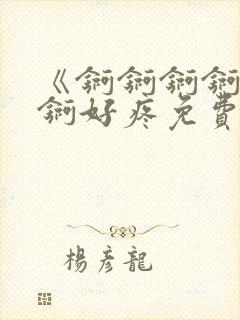 《锕锕锕锕
锕好疼免費
楊彦龍